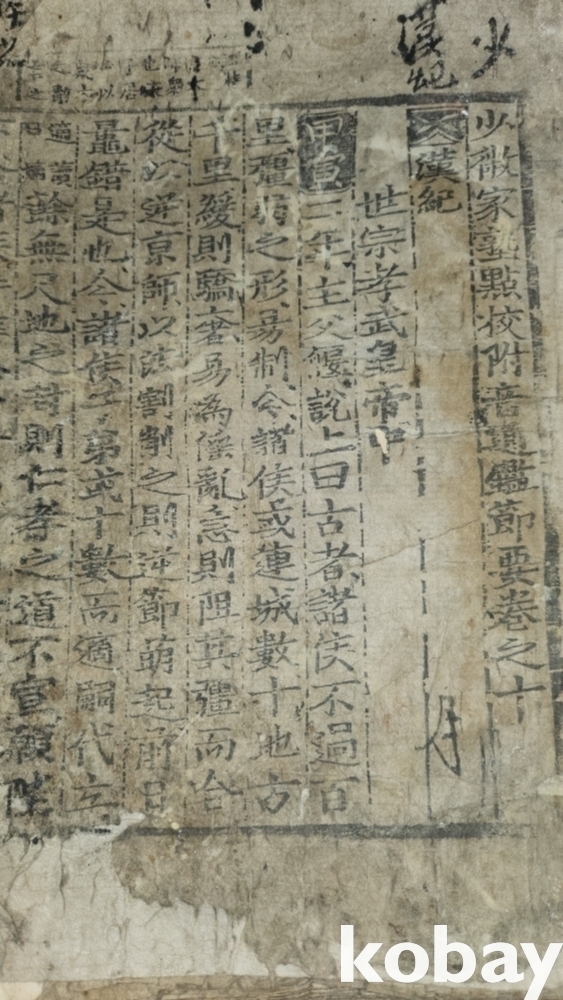 少微家塾點校附音通鑑節要卷之十
漢紀
世宗孝武皇帝中
甲寅三年主父偃說上曰古者諸侯不過百
里彊弱之形易制今諸侯或連城數十地方
千里緩則驕奢易為淫亂急則阻其彊而合
從以逆京師以法割削之則逆節萌起前日
鼂錯是也今諸侯子弟或十數而適嗣代立
餘無尺地之封則仁孝之道不宣願陛
少
漢紀
kobay